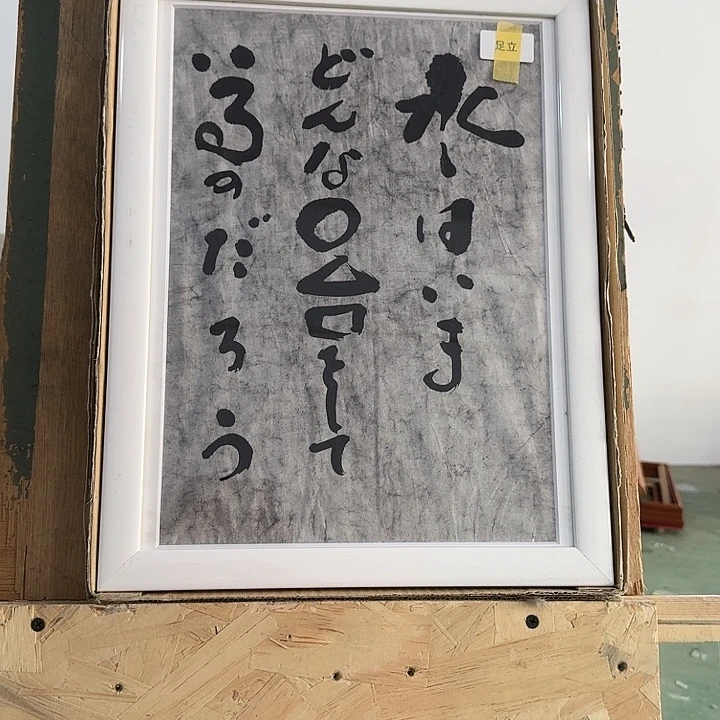 足立
水はいま
どんな○△□をして
いるのだろう